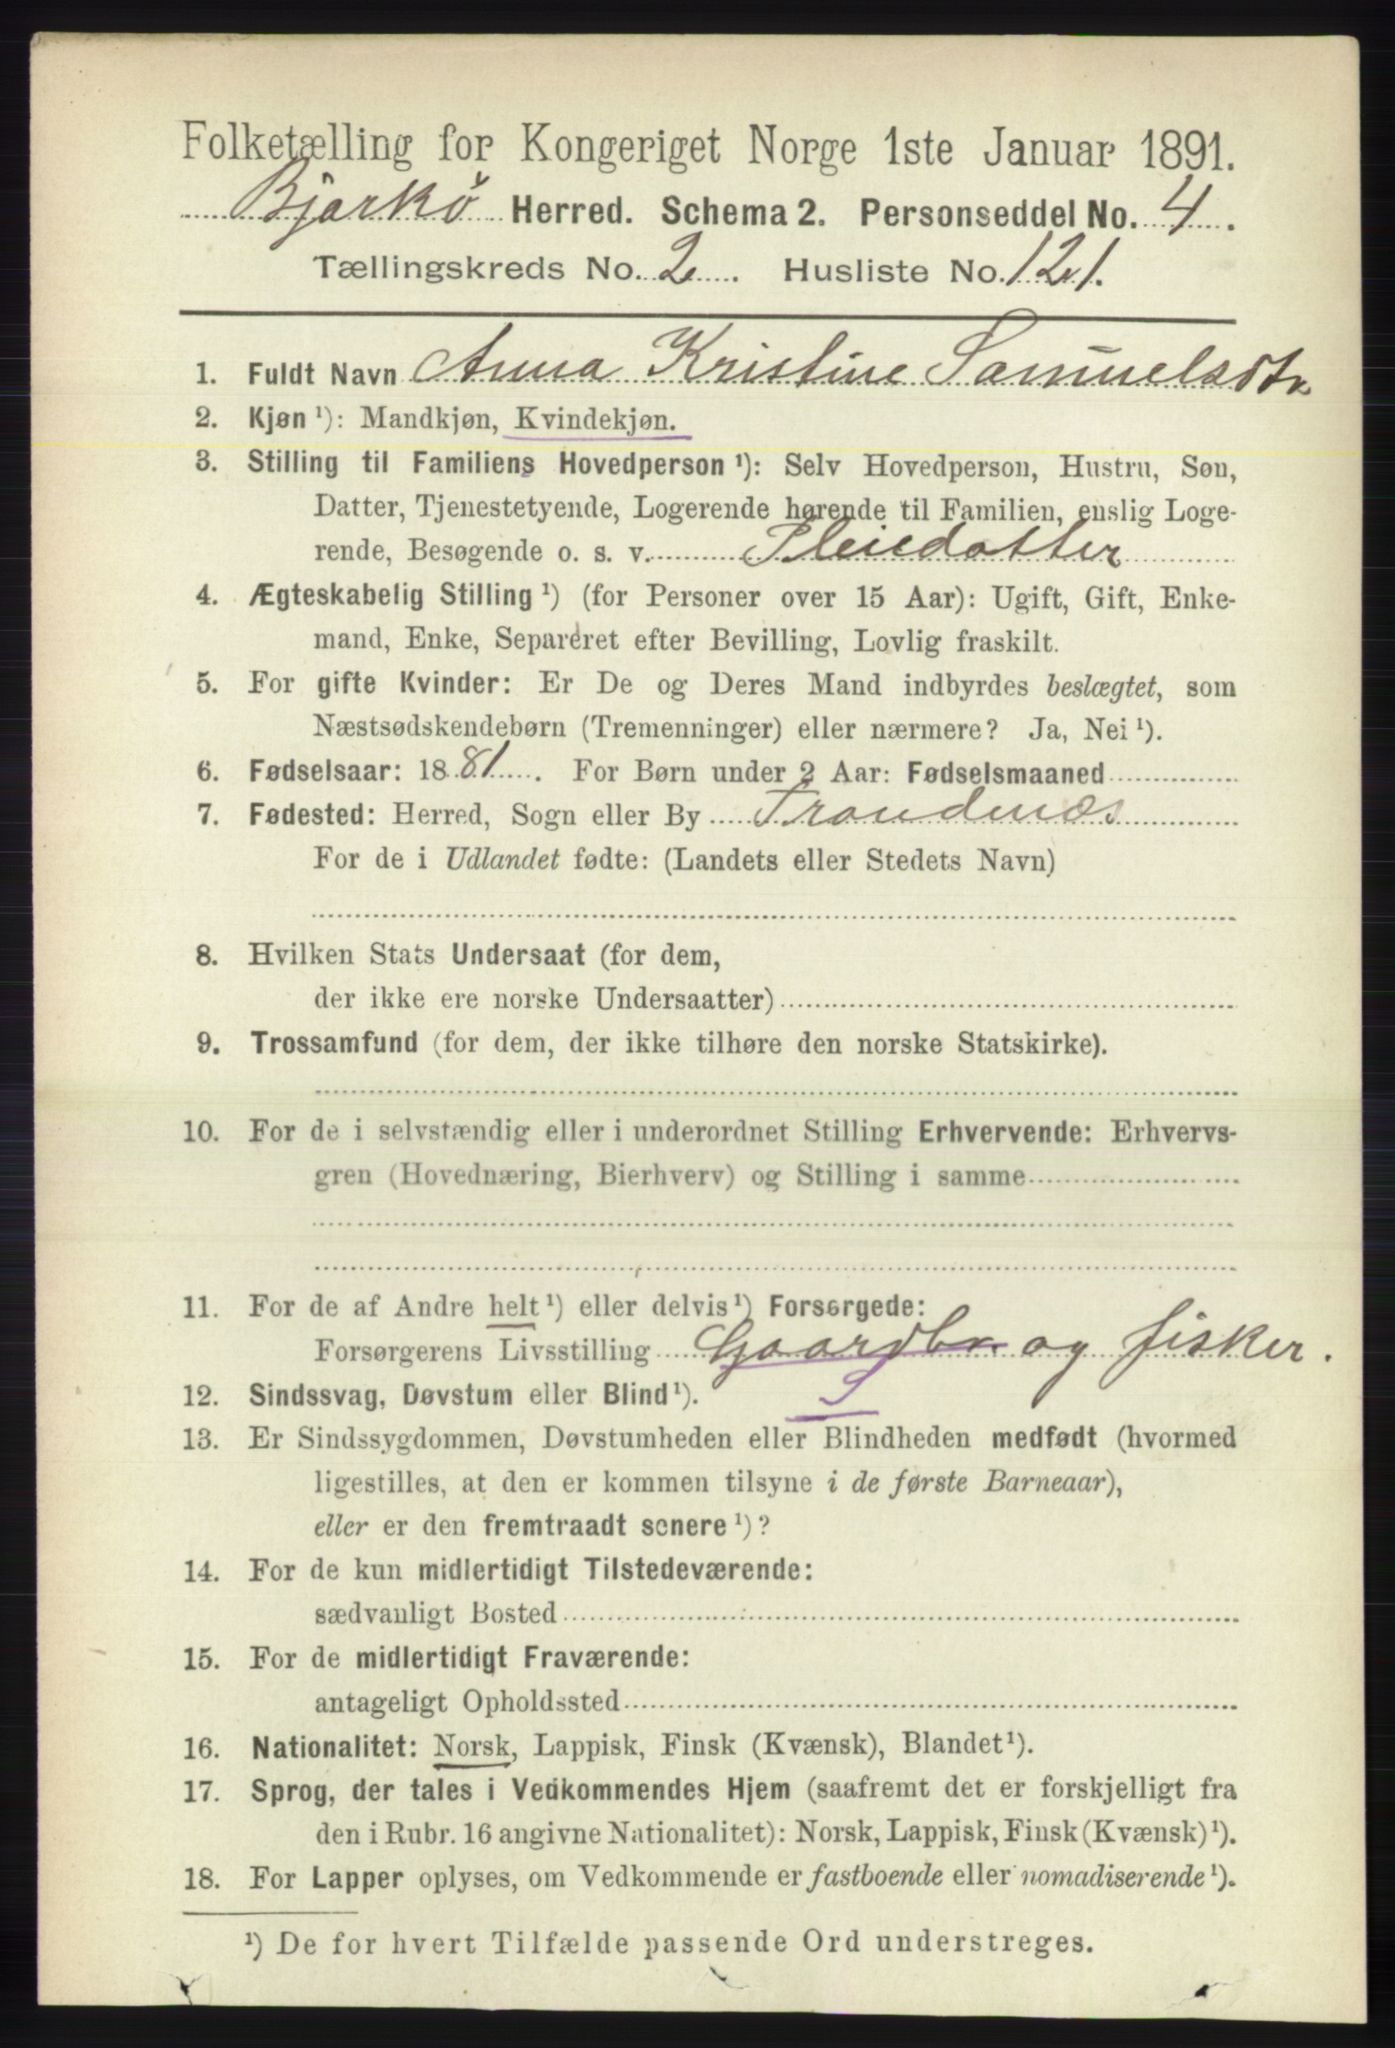 Folketælling for Kongeriget Norge 1ste Januar 1891.
Bjarkö Herred. Schema 2. Personseddel No. 4.
Tællingskreds No. 2. Husliste No. 121.
1. Fuldt Navn Anna Kristine Samuelsdtr
2. Kjøn ¹): Mandkjøn, Kvindekjøn.
3. Stilling til Familiens Hovedperson ¹): Selv Hovedperson, Hustru, Søn,
Datter, Tjenestetyende, Logerende hørende til Familien, enslig Loge-
rende, Besøgende o. s. v. Pleiedatter
4. Ægteskabelig Stilling ¹) (for Personer over 15 Aar): Ugift, Gift, Enke-
mand, Enke, Separeret efter Bevilling, Lovlig fraskilt.
5. For gifte Kvinder: Er De og Deres Mand indbyrdes beslægtet, som
Næstsødskendebørn (Tremenninger) eller nærmere? Ja, Nei ¹).
6. Fødselsaar: 1881. For Børn under 2 Aar: Fødselsmaaned
7. Fødested: Herred, Sogn eller By Trondenæs
For de i Udlandet fødte: (Landets eller Stedets Navn)
8. Hvilken Stats Undersaat (for dem,
der ikke ere norske Undersaatter)
9. Trossamfund (for dem, der ikke tilhøre den norske Statskirke).
10. For de i selvstændig eller i underordnet Stilling Erhvervende: Erhvervs-
gren (Hovednæring, Bierhverv) og Stilling i samme
11. For de af Andre helt ¹) eller delvis ¹) Forsørgede:
Forsørgerens Livsstilling Gaardbr og fisker.
12. Sindssvag, Døvstum eller Blind ¹). S
13. Er Sindssygdommen, Døvstumheden eller Blindheden medfødt (hvormed
ligestilles, at den er kommen tilsyne i de første Barneaar),
eller er den fremtraadt senere ¹)?
14. For de kun midlertidigt Tilstedeværende:
sædvanligt Bosted
15. For de midlertidigt Fraværende:
antageligt Opholdssted
16. Nationalitet: Norsk, Lappisk, Finsk (Kvænsk), Blandet ¹).
17. Sprog, der tales i Vedkommendes Hjem (saafremt det er forskjelligt fra
den i Rubr. 16 angivne Nationalitet): Norsk, Lappisk, Finsk (Kvænsk) ¹).
18. For Lapper oplyses, om Vedkommende er fastboende eller nomadiserende ¹).
¹) De for hvert Tilfælde passende Ord understreges.